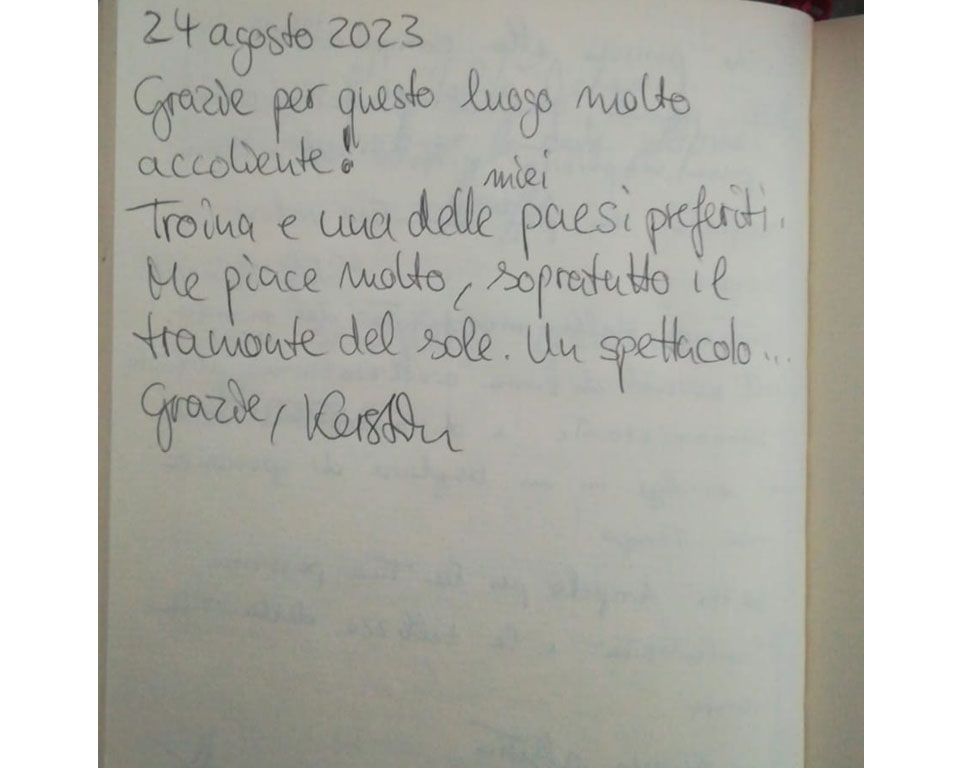 24 agosto 2023
Grazie per questo luogo molto
accoliente!
miei
Troina e una delle paesi preferiti.
Me piace molto, sopratutto il
tramonte del sole. Un spettacolo...
Grazie, Kerstin